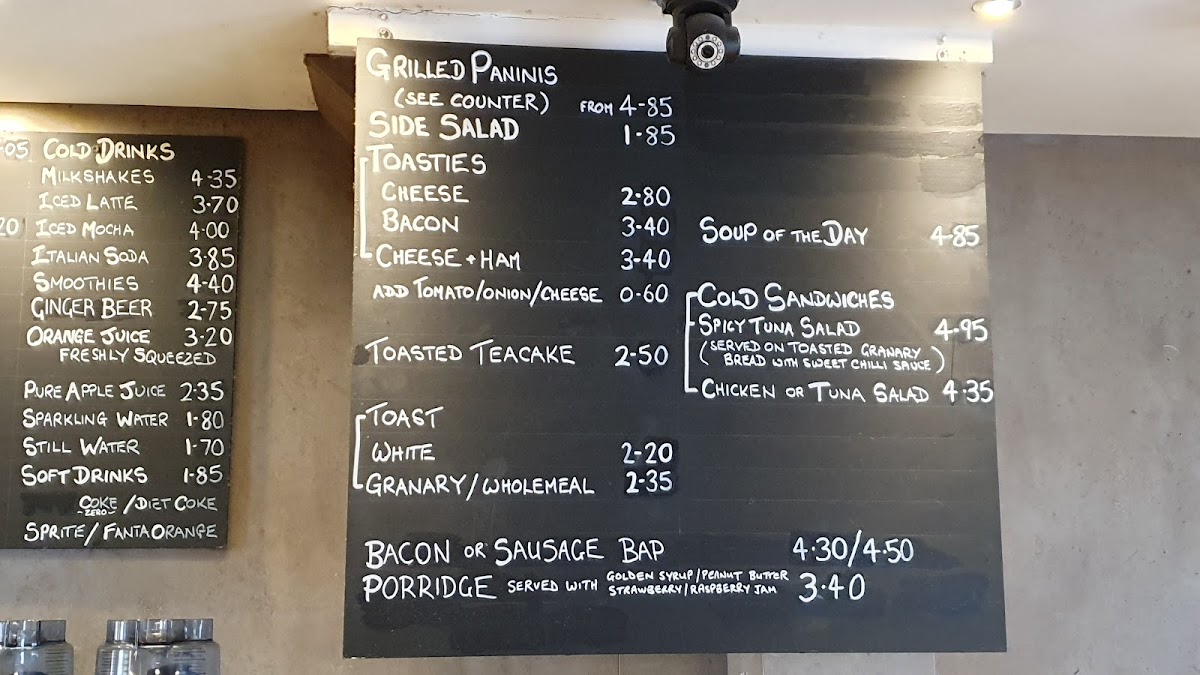 05 COLD DRINKS
MILKSHAKES 4-35
ICED LATTE 3-70
20 ICED MOCHA 4-00
ITALIAN SODA 3-85
SMOOTHIES 4-40
GINGER BEER 2-75
ORANGE JUICE 3-20
FRESHLY SQUEEZED
PURE APPLE JUICE 2-35
SPARKLING WATER 1-80
STILL WATER 1-70
SOFT DRINKS 1-85
COKE / DIET COKE
-ZERO-
SPRITE / FANTA ORANGE
GRILLED PANINIS
(SEE COUNTER) FROM 4-85
SIDE SALAD 1-85
TOASTIES
CHEESE 2-80
BACON 3-40
CHEESE + HAM 3-40
ADD TOMATO/ONION/CHEESE 0-60
TOASTED TEACAKE 2-50
TOAST
WHITE 2-20
GRANARY/WHOLEMEAL 2-35
SOUP OF THE DAY 4-85
COLD SANDWICHES
SPICY TUNA SALAD 4-95
(SERVED ON TOASTED GRANARY
BREAD WITH SWEET CHILLI SAUCE)
CHICKEN OR TUNA SALAD 4-35
BACON OR SAUSAGE BAP 4-30/4-50
PORRIDGE SERVED WITH GOLDEN SYRUP/PEANUT BUTTER
STRAWBERRY/RASPBERRY JAM 3-40